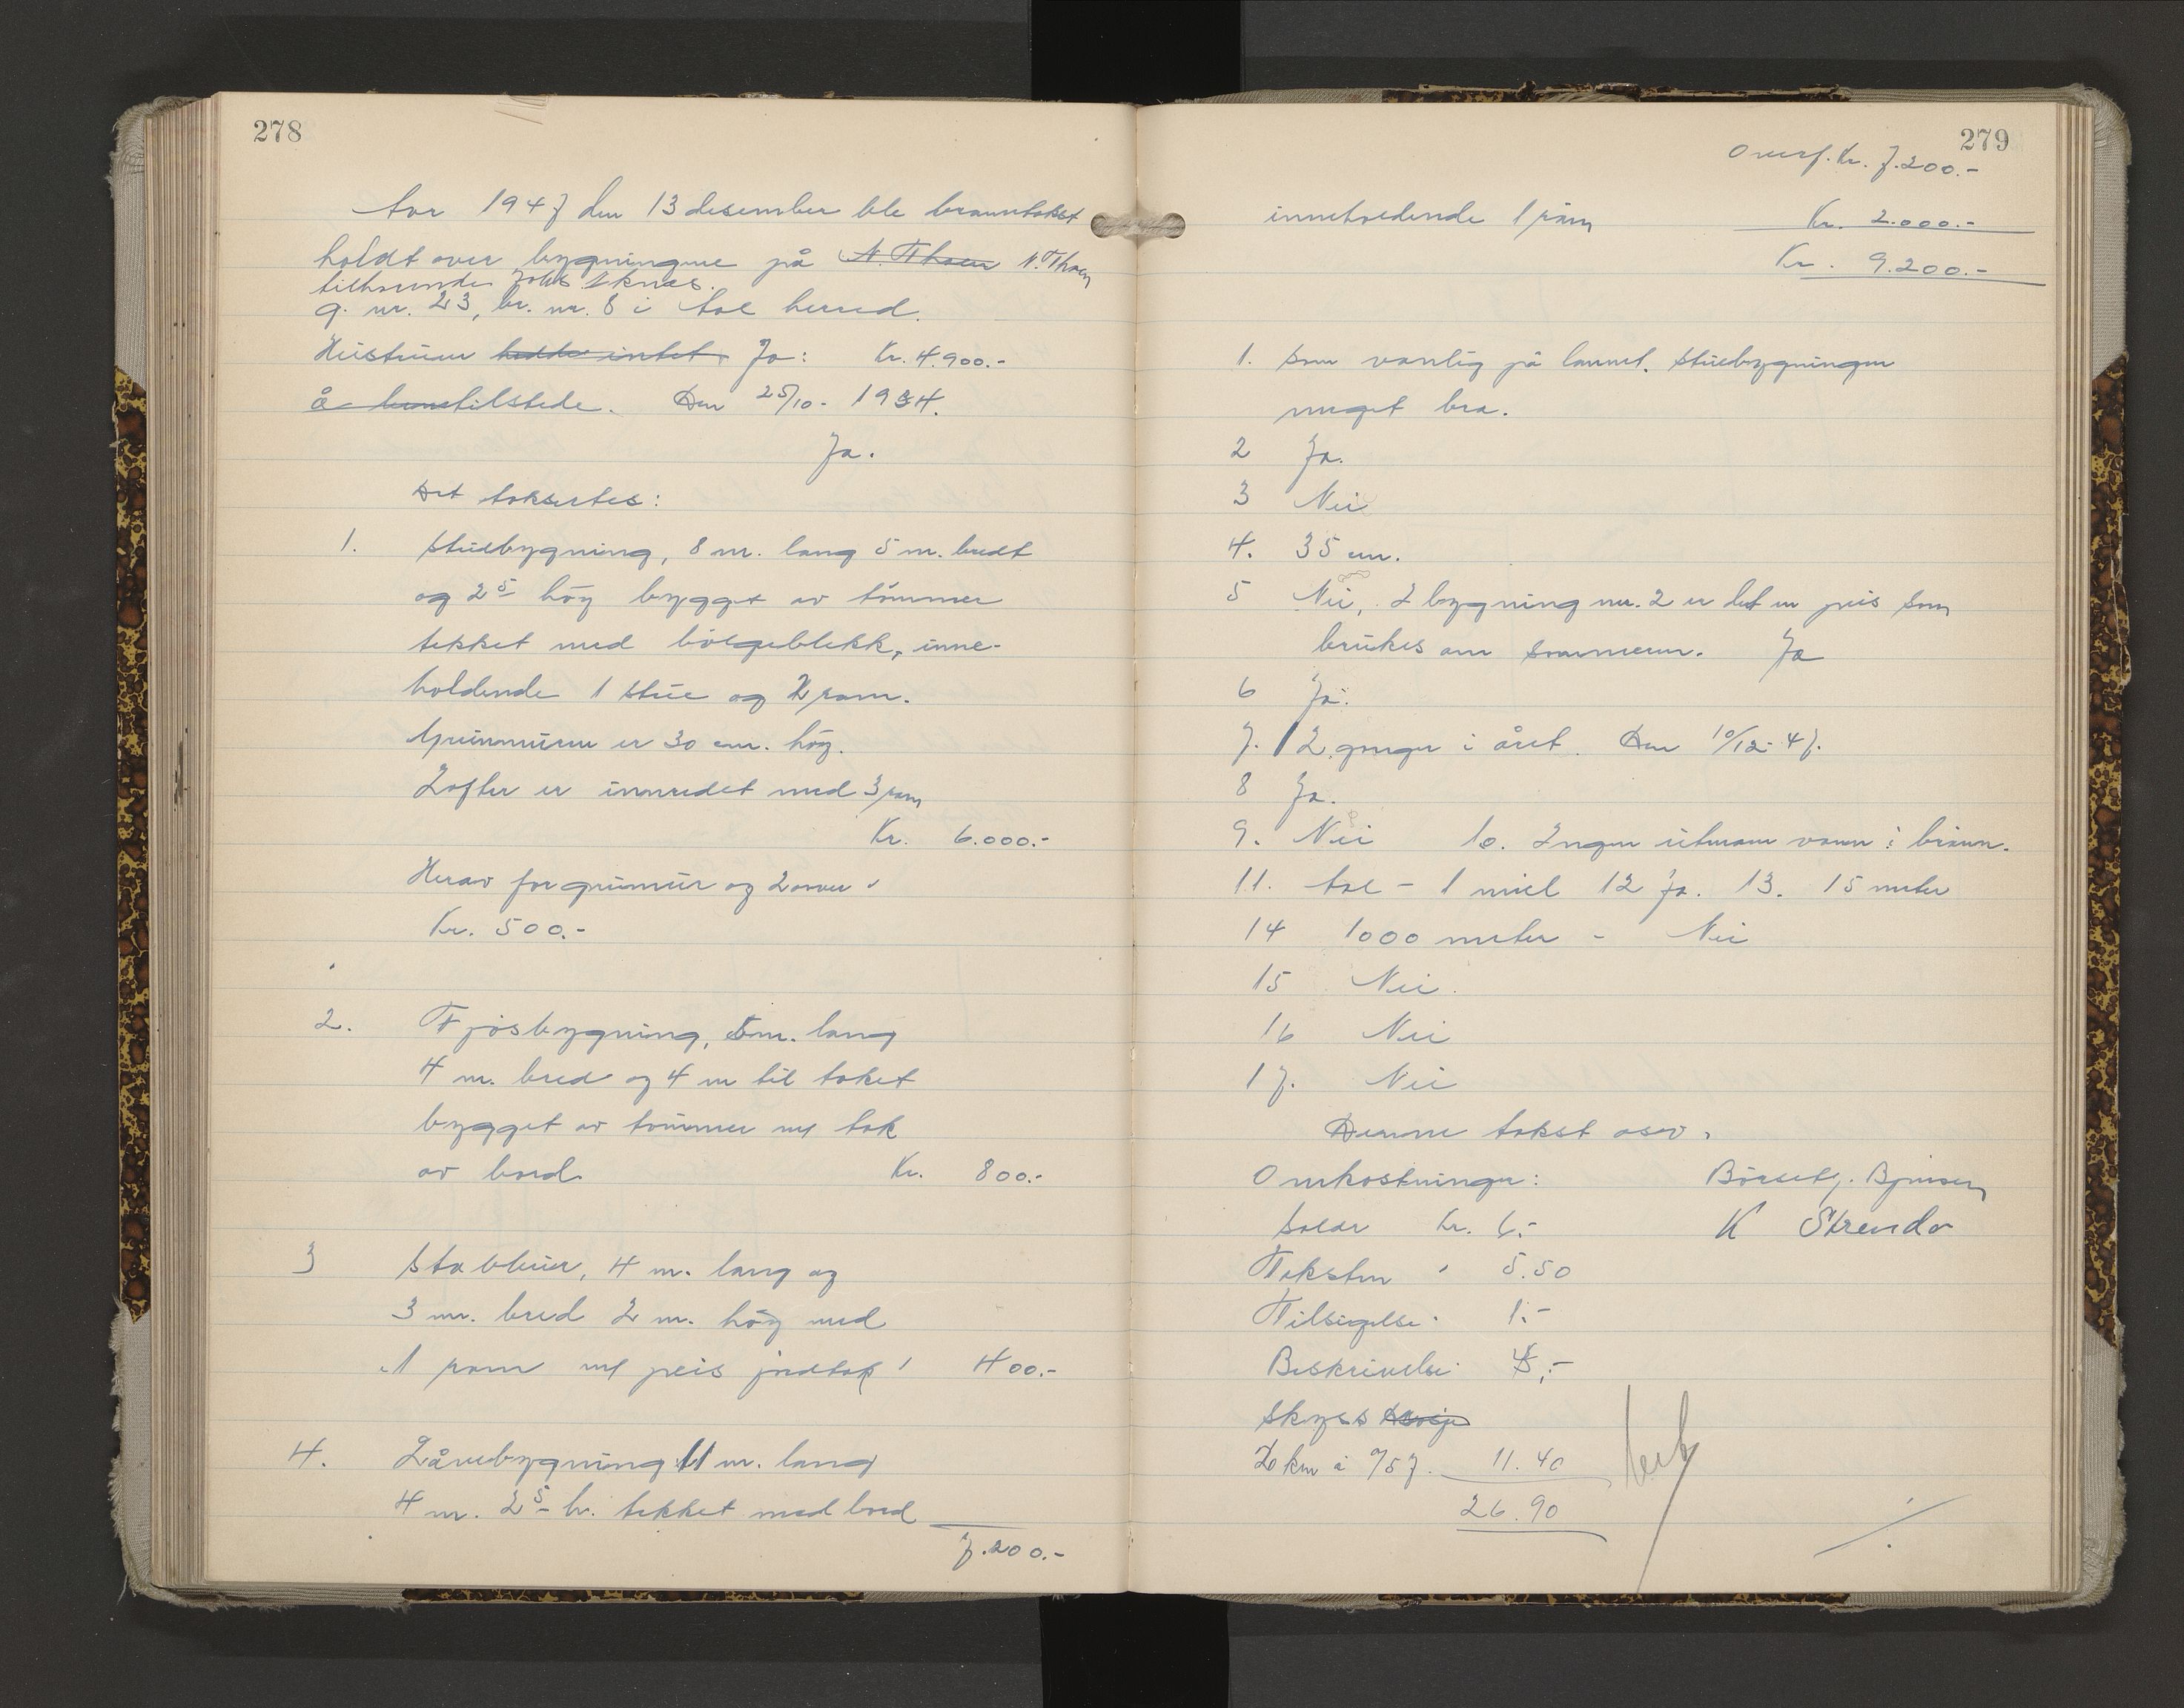 278
År 1947 den 13 desember ble branntakst
holdt over bygningene på N. Thoen N. Thoen
tilhørende Johs Øknes.
g. nr. 23, br. nr. 8 i Ål herred.
Hustruen hadde intet Ja: Kr. 4.900.-
å tilstede. Den 25/10 - 1934.
Ja.
Det taksertes:
1. Stuebygning, 8 m. lang 5 m. bredt
og 2 5 høg bygget av tømmer
tekket med bølgeblekk, inne-
holdende 1 stue og 2 rom.
Grunnmuren er 30 cm. høg.
Lofter er innredet med 3 rom
Kr. 6.000.-
Herav for grunmur og 2 ovner
Kr. 500.-
2. Fjøsbygning, 5 m. lang
4 m. bred og 4 m til taket
bygget av tømmer m/ tak
av bord. Kr. 800.-
3 Stabbur, 4 m. lang og
3 m. bred 2 m. høg med
1 rom m/ peis jordtak 400.-
4. Låvebygning 11 m. lang
4 m. 2 5 h. tekket med bord
7.200.-
279
Overf. Kr. 7.200.-
inneholdende 1 rom Kr. 2.000.-
Kr. 9.200.-
1. Som vanlig på lannet. Stuebygningen
meget bra.
2 Ja.
3 Nei
4. 35 cm.
5 Nei, I bygning nr. 2 er det en peis som
brukes om sommeren. Ja
6 Ja.
7. 12 ganger i året. Den 10/12-47.
8 Ja.
9. Nei 10. Ingen utenom vann i brønn.
11. Ål - 1 mil 12 Ja. 13. 15 meter
14 1000 meter - Nei
15 Nei.
16 Nei
17. Nei
Denne takst osv.
Omkostninger: Børsetj. Bjensen
Kr. 6.- K Strenda
Taksten " 5.50
Tilsigelse " 1.-
Beskrivelse " 3,-
Skyss
20 km à º/57. 11.40
26.90